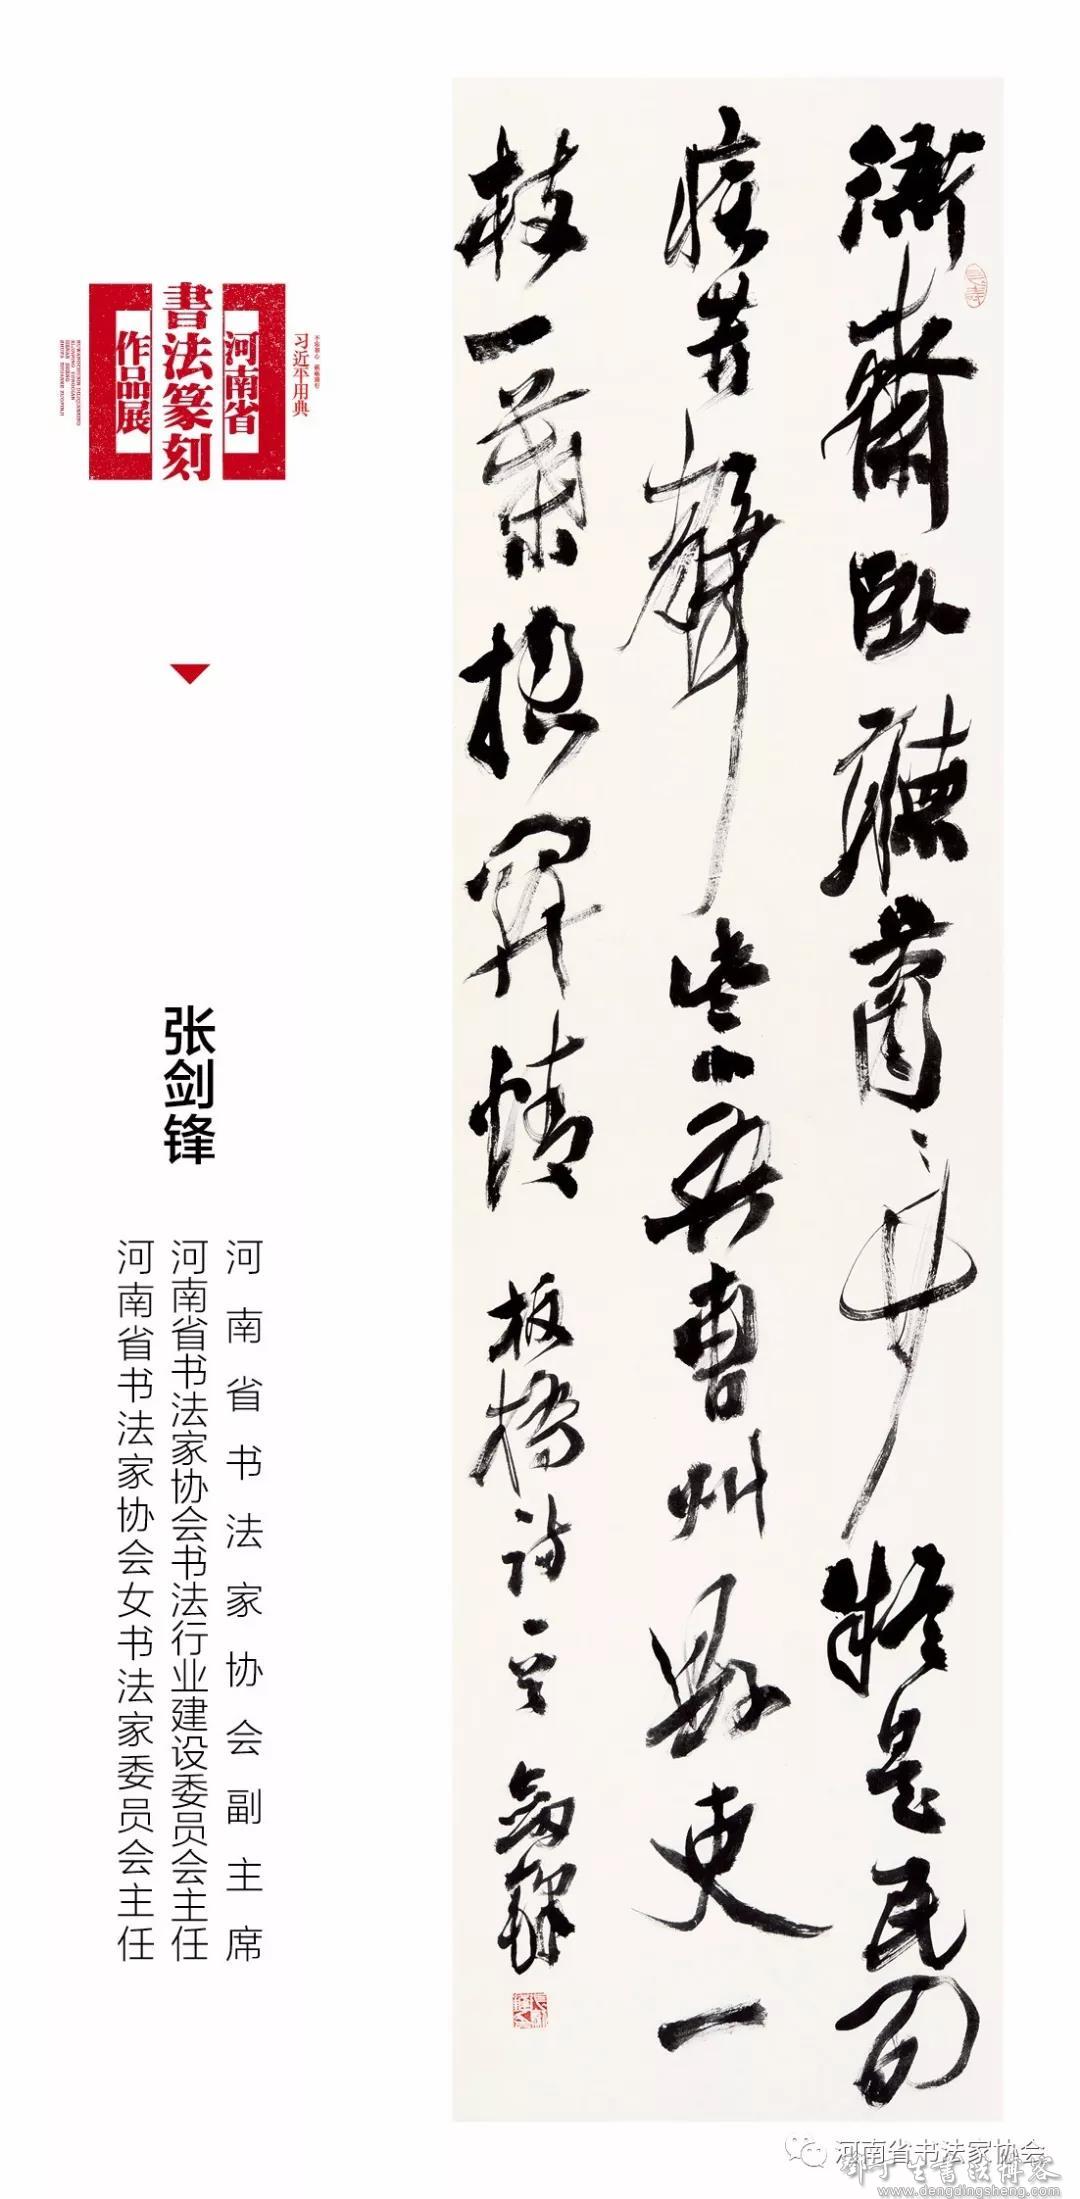 衙齋臥聽蕭蕭竹疑是民間
疾苦聲些小吾曹州縣吏一
枝一葉總關情 板橋詩一首 劍鋒
习近平用典
河南省
書法篆刻
作品展
张剑锋
河南省书法家协会副主席
河南省书法家协会书法行业建设委员会主任
河南省书法家协会女书法家委员会主任
河南省书法家协会
邓丁生书法博客
www.dengdingsheng.com